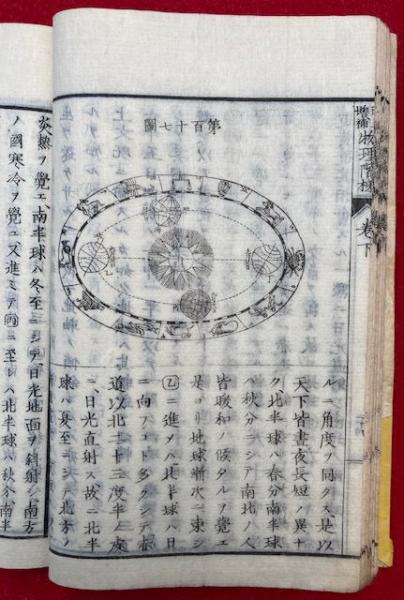 物理階梯 卷下
第百十七圖
ルニ角度ヲ同クス、是以
天下皆晝夜長短ノ異ナ
ク、北半球ハ春分南半球
ハ秋分ニシテ南北ノ人
皆暖和ノ候タルヲ覺エ
是ヨリ地球漸次ニ東シ
乙ニ進メハ北半球ハ日
ニ向フコト多クシテ赤
道以北二十三度半ノ處
ニ日光直射ス、故ニ北半
球ハ夏至ニシテ北方ノ
炎熱ヲ覺エ、南半球ハ冬至ニシテ日光地面ヲ斜射シ南方
ノ國寒冷ヲ覺ユ又進ミテ丙ニ至レハ北半球ハ秋分南半